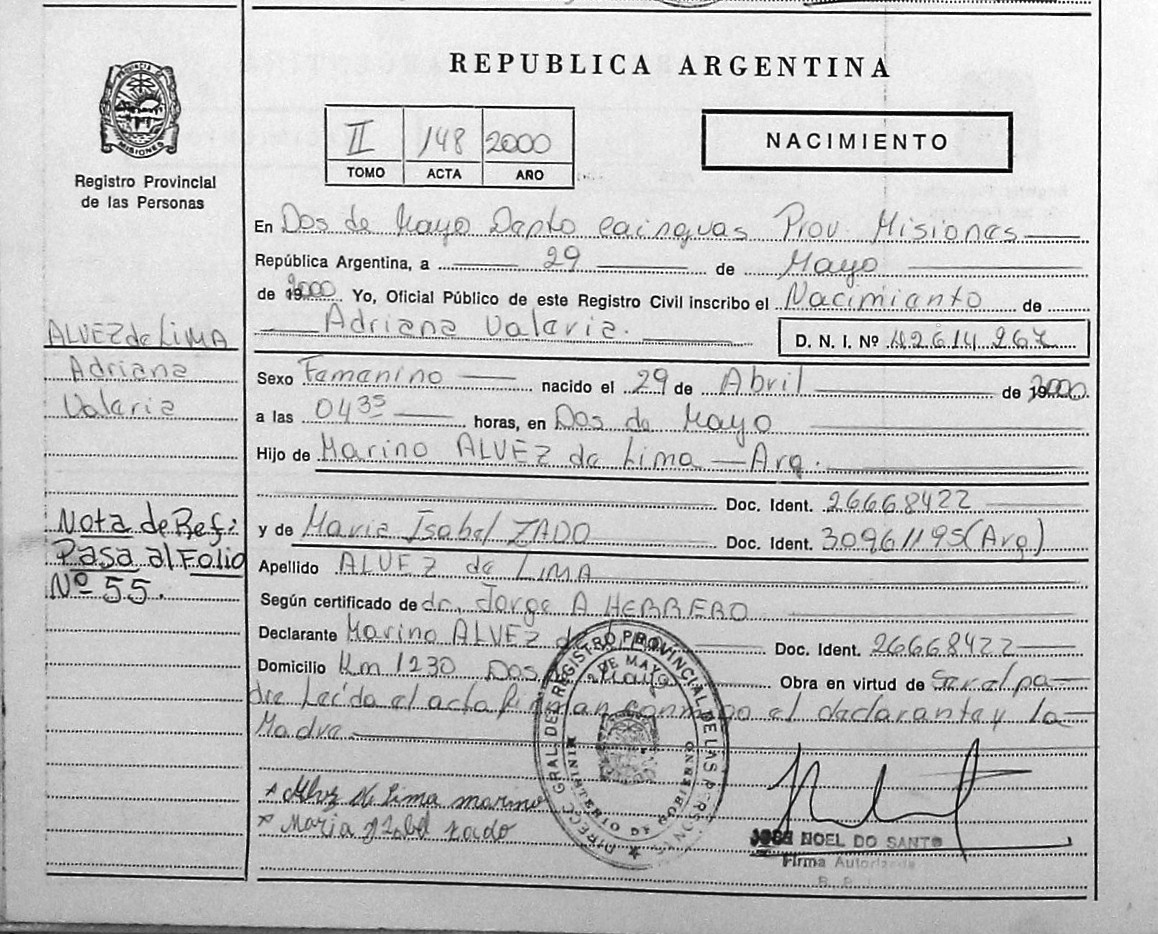 REPUBLICA ARGENTINA
PROVINCIA DE
MISIONES
Registro Provincial
de las Personas
II 148 2000
TOMO ACTA AÑO
NACIMIENTO
En Dos de Mayo Depto Cainguas Prov. Misiones
República Argentina, a 29 de Mayo
de 2000 Yo, Oficial Público de este Registro Civil inscribo el Nacimiento de
Adriana Valeria.
D. N. I. Nº 42.614.267
ALVEZ de LIMA
Adriana
Valeria
Sexo Femenino nacido el 29 de Abril de 2000
a las 04 35 horas, en Dos de Mayo
Hijo de Marino ALVEZ de Lima — Arg.
Doc. Ident. 26668422
y de Maria Isabel ZADO Doc. Ident. 30961195 (Arg)
Nota de Ref:
Pasa al Folio
Nº 55.
Apellido ALVEZ de LIMA
Según certificado de dr. Jorge A HERRERO
Declarante Marino ALVEZ de Lima Doc. Ident. 26668422
Domicilio Km 1230 Dos de Mayo Obra en virtud de Ser el pa-
dre Leida el acta firman conmigo el declarante y la
Madre
x Alvez de Lima marino
x Maria Isabel Zado
DIRECC. GRAL. DEL REGISTRO PROVINCIAL DE LAS PERSONAS
DOS DE MAYO
MINISTERIO DE GOBIERNO
JOSE NOEL DO SANTO
Firma Autorizada